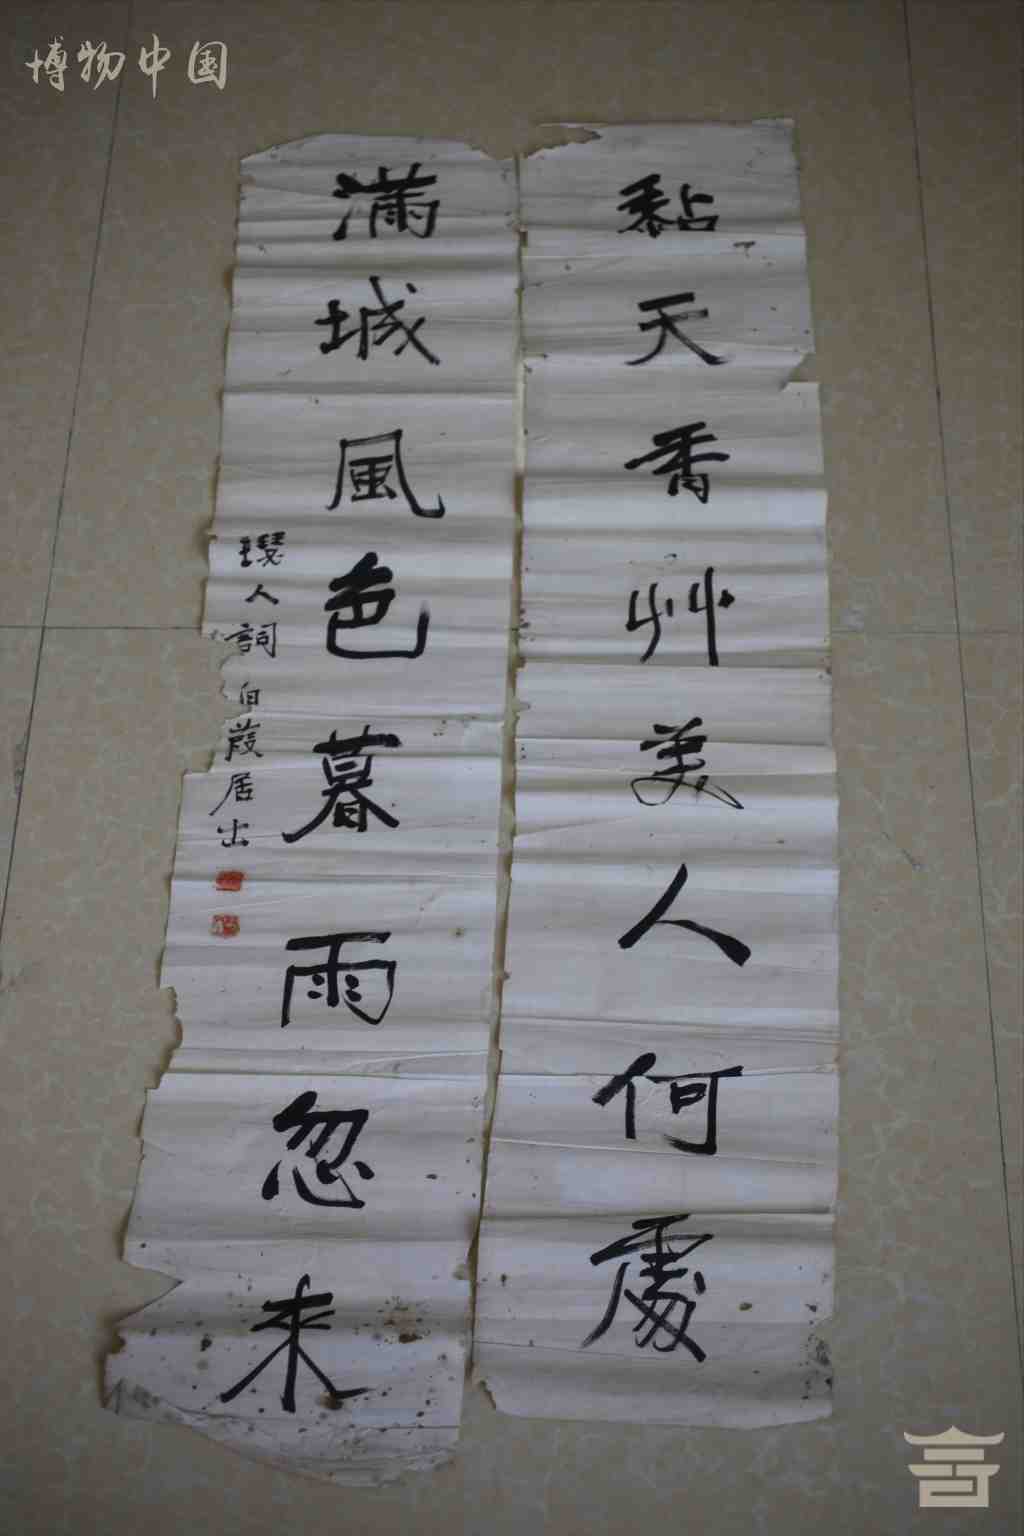 博物中国
黏天香艸美人何處
滿城風色暮雨忽来
人詞 伯葭居士